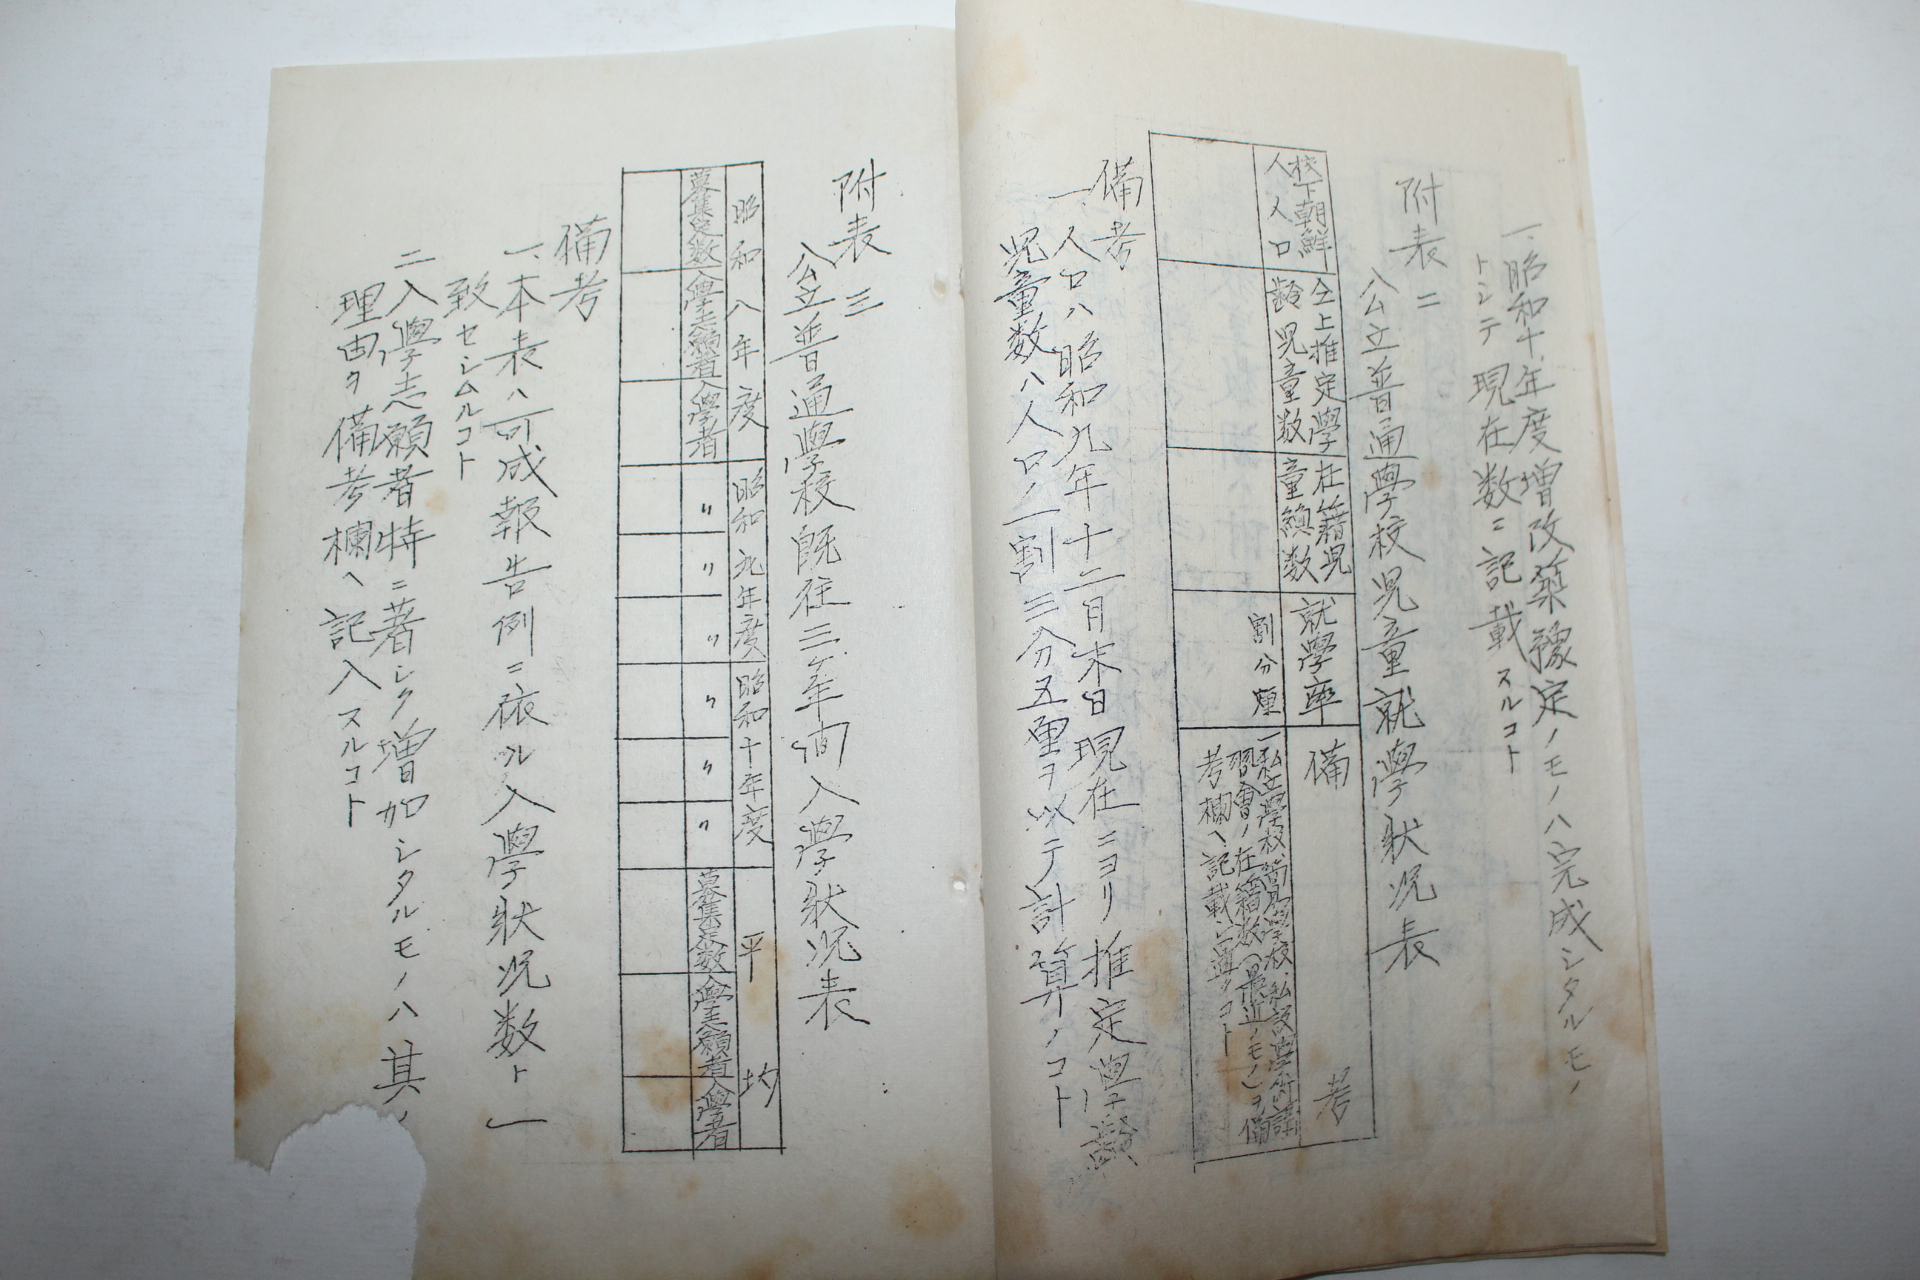 一、昭和十年度増改築豫定ノモノハ完成シタルモノ
トシテ現在数ニ記載スルコト
附表二
公立普通學校児童就學状况表
校下朝鮮
人人口
仝上推定學
齢児童数
在籍児
童総数
就學率
割分厘
備考
一私立學校、簡易學校、私設學術講
習會ノ在籍数(最近ノモノ)ヲ備
考欄ヘ記載シ置クコト
備考
一、人口ハ昭和九年十二月末日現在ニヨリ推定學齢
児童数ハ人口ノ一割三分五厘ヲ以テ計算ノコト
附表三
公立普通學校既往三ヶ年间入學状况表
昭和八年度
昭和九年度
昭和十年度
平均
募集定数
入學志願者
入學者
〃
〃
〃
〃
〃
〃
募集定数
入學志願者
入學者
備考
一、本表ハ可成報告例ニ依ル入學状况数ト一
致セシムルコト
二入學志願者特ニ著シク増加シタルモノハ其ノ
理由ヲ備考欄ヘ記入スルコト